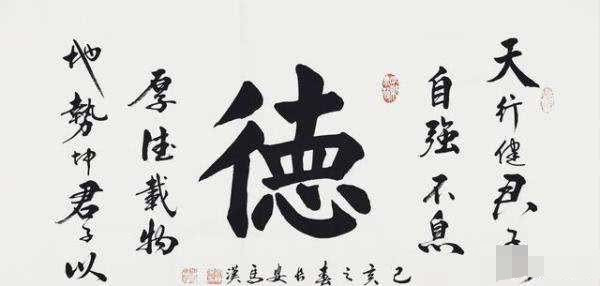 天行健君子
自強不息
徳
地勢坤君子以
厚德載物
己亥之春長安馬漢